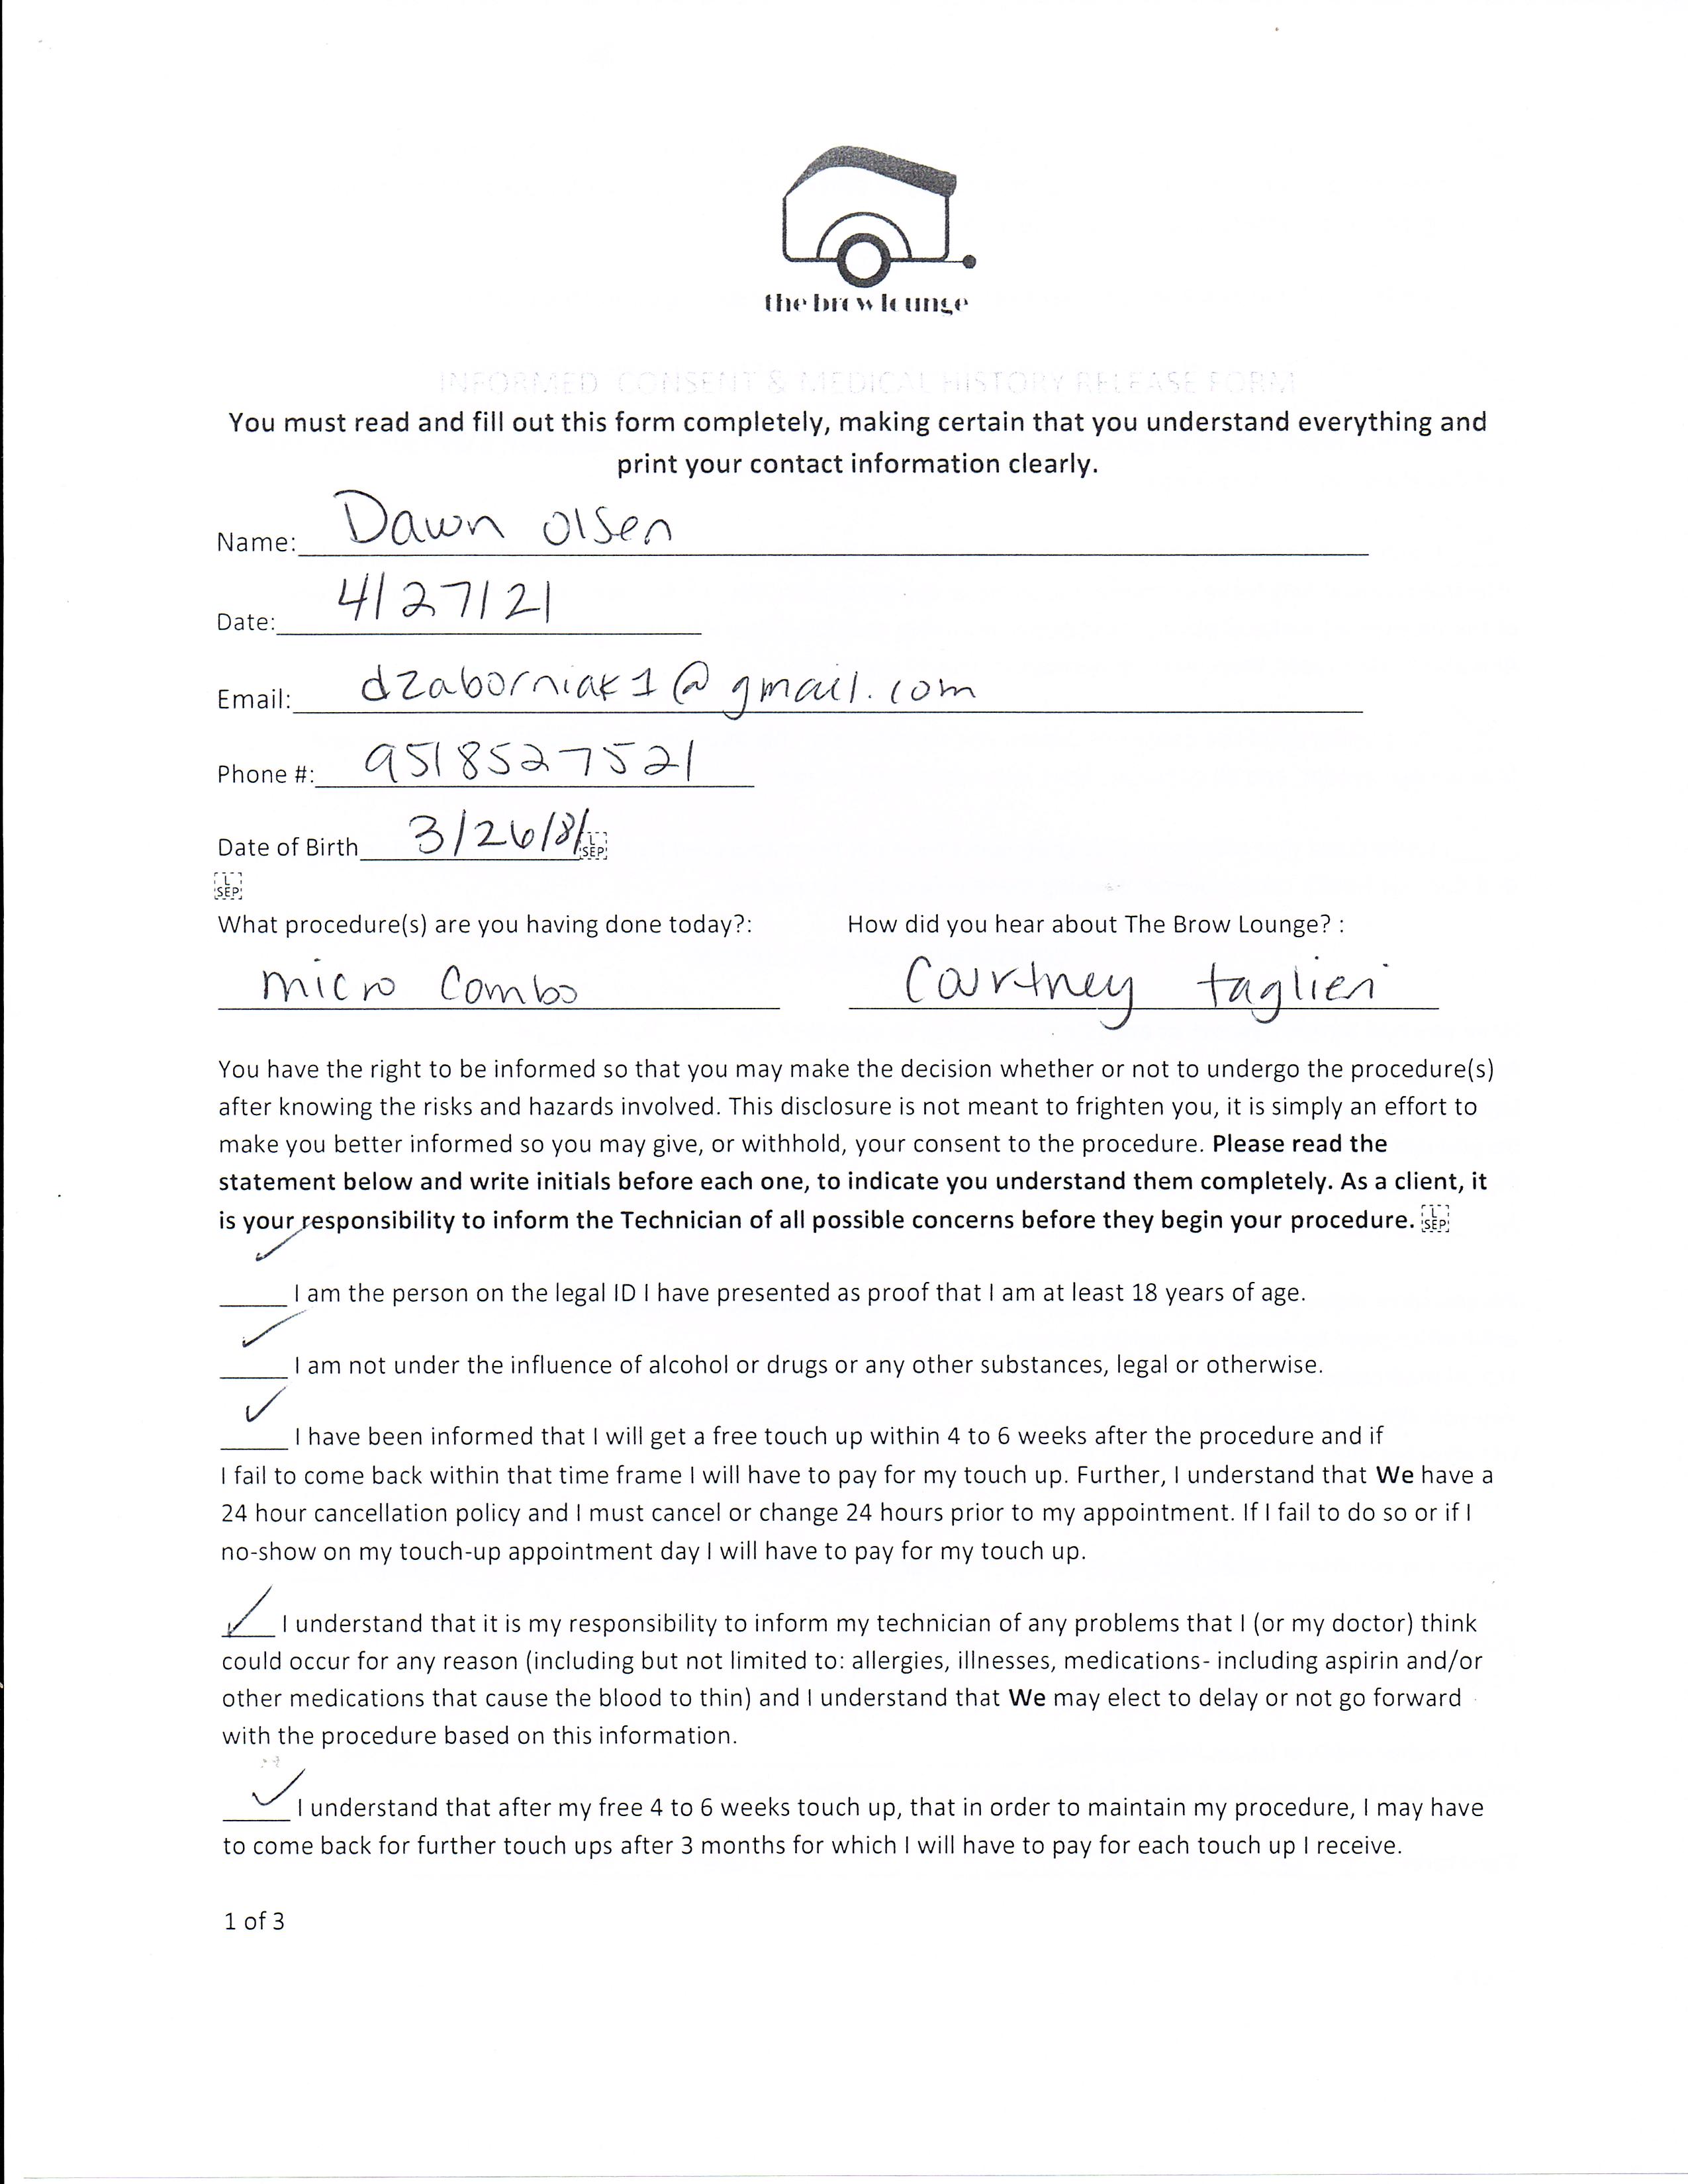 the brow lounge
INFORMED CONSENT & MEDICAL HISTORY RELEASE FORM
You must read and fill out this form completely, making certain that you understand everything and
print your contact information clearly.
Name: Dawn Olsen
Date: 4/27/21
Email: dzaborniak1@gmail.com
Phone #: 9518527521
Date of Birth 3/26/81
L SEP
L SEP
What procedure(s) are you having done today?: How did you hear about The Brow Lounge? :
micro combo Courtney taglieri
You have the right to be informed so that you may make the decision whether or not to undergo the procedure(s)
after knowing the risks and hazards involved. This disclosure is not meant to frighten you, it is simply an effort to
make you better informed so you may give, or withhold, your consent to the procedure. Please read the
statement below and write initials before each one, to indicate you understand them completely. As a client, it
is your responsibility to inform the Technician of all possible concerns before they begin your procedure. L SEP
✓ I am the person on the legal ID I have presented as proof that I am at least 18 years of age.
✓ I am not under the influence of alcohol or drugs or any other substances, legal or otherwise.
✓ I have been informed that I will get a free touch up within 4 to 6 weeks after the procedure and if
I fail to come back within that time frame I will have to pay for my touch up. Further, I understand that We have a
24 hour cancellation policy and I must cancel or change 24 hours prior to my appointment. If I fail to do so or if I
no-show on my touch-up appointment day I will have to pay for my touch up.
✓ I understand that it is my responsibility to inform my technician of any problems that I (or my doctor) think
could occur for any reason (including but not limited to: allergies, illnesses, medications- including aspirin and/or
other medications that cause the blood to thin) and I understand that We may elect to delay or not go forward
with the procedure based on this information.
✓ I understand that after my free 4 to 6 weeks touch up, that in order to maintain my procedure, I may have
to come back for further touch ups after 3 months for which I will have to pay for each touch up I receive.
1 of 3